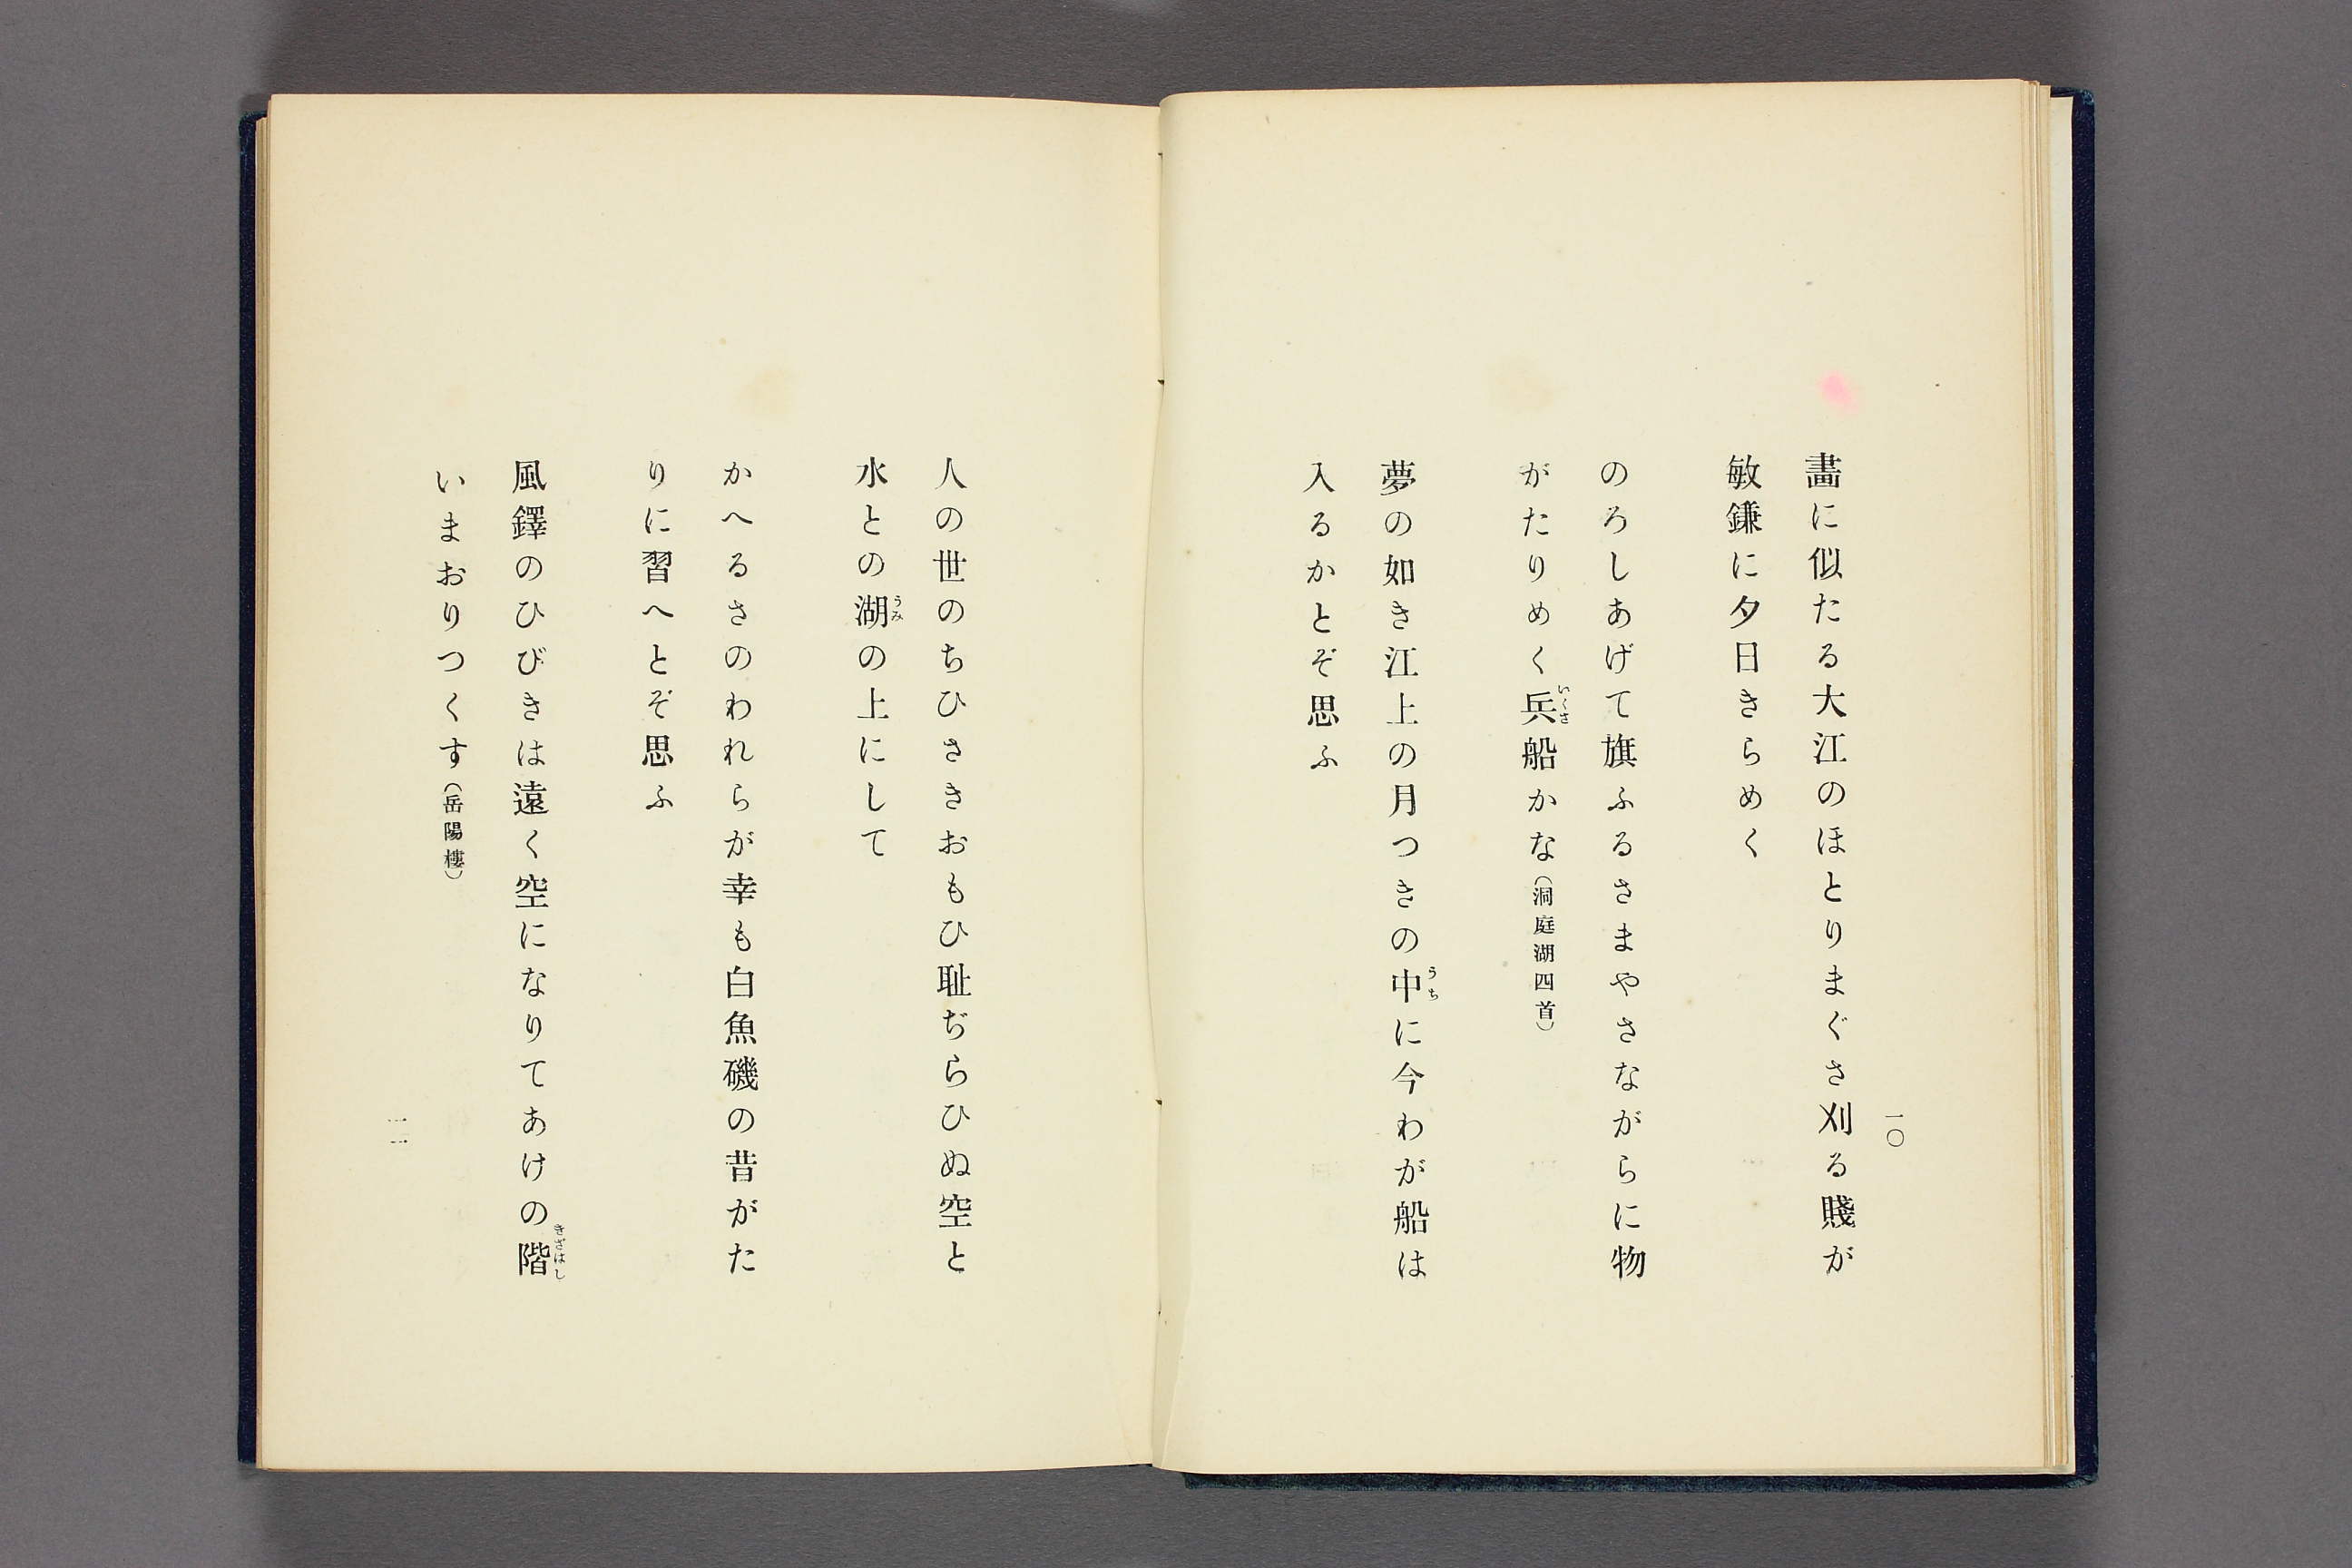 一〇
畵に似たる大江のほとりまぐさ刈る賤が
敏鎌に夕日きらめく
のろしあげて旗ふるさまやさながらに物
がたりめく兵船かな(洞庭湖四首)
いくさ
夢の如き江上の月つきの中に今わが船は
うち
入るかとぞ思ふ
人の世のちひさきおもひ耻ぢらひぬ空と
水との湖の上にして
うみ
かへるさのわれらが幸も白魚磯の昔がた
りに習へとぞ思ふ
風鐸のひびきは遠く空になりてあけの階
きざはし
いまおりつくす(岳陽樓)
一一